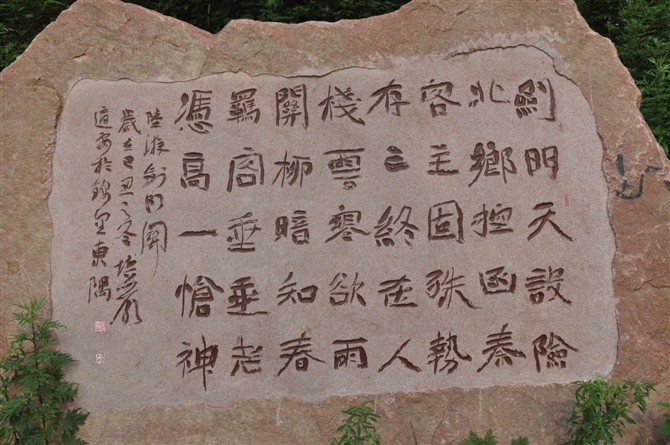 劍門天設險
北鄉控函秦
客主固殊勢
存亡終在人
棧雲寒欲雨
關柳暗知春
羈客垂垂老
憑高一愴神
陸游劍門關
歲在己丑之冬
於錦里東隅